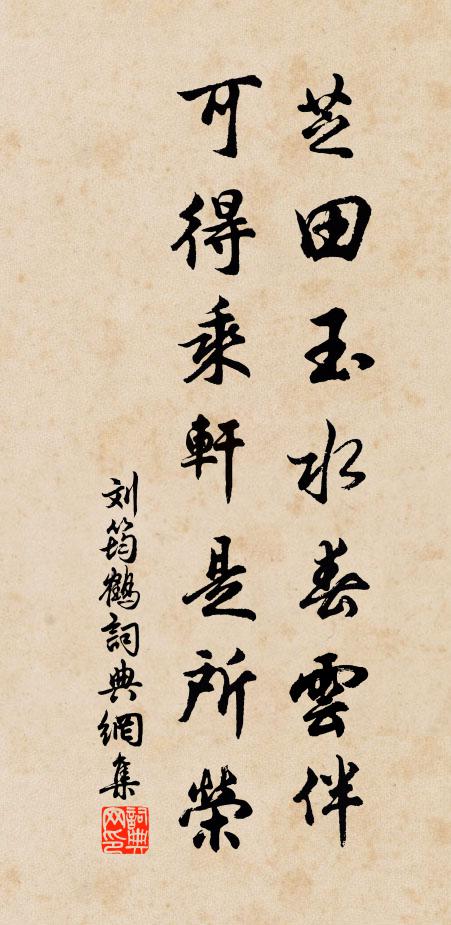 芝田玉水春雲伴
可得乘軒是所榮
刘筠鶴詞典網集
詞典网印